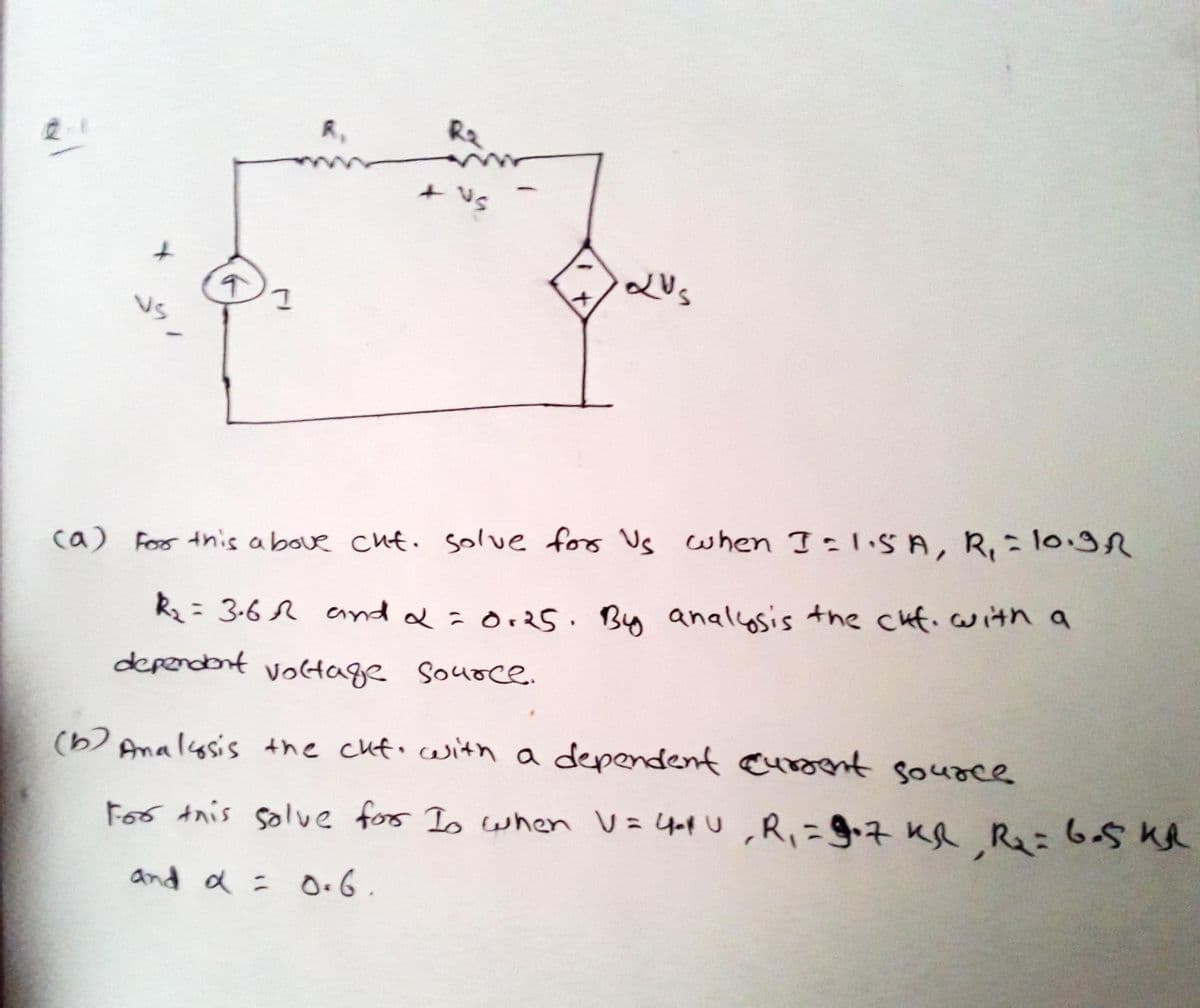 Q.1
R₁ R₂
+ Vs -
+
Vs
-
I
-
+
αVs
(a) For this above cut. solve for Vs when I = 1.5 A, R₁ = 10.9Ω
R₂ = 3.6 Ω and α = 0.25. By analysis the ckt. with a
dependent voltage source.
(b) Analysis the ckt. with a dependent current source
For this solve for Io when V = 4.1 V, R₁ = 9.7 KΩ, R₂ = 6.5 KΩ
and α = 0.6.